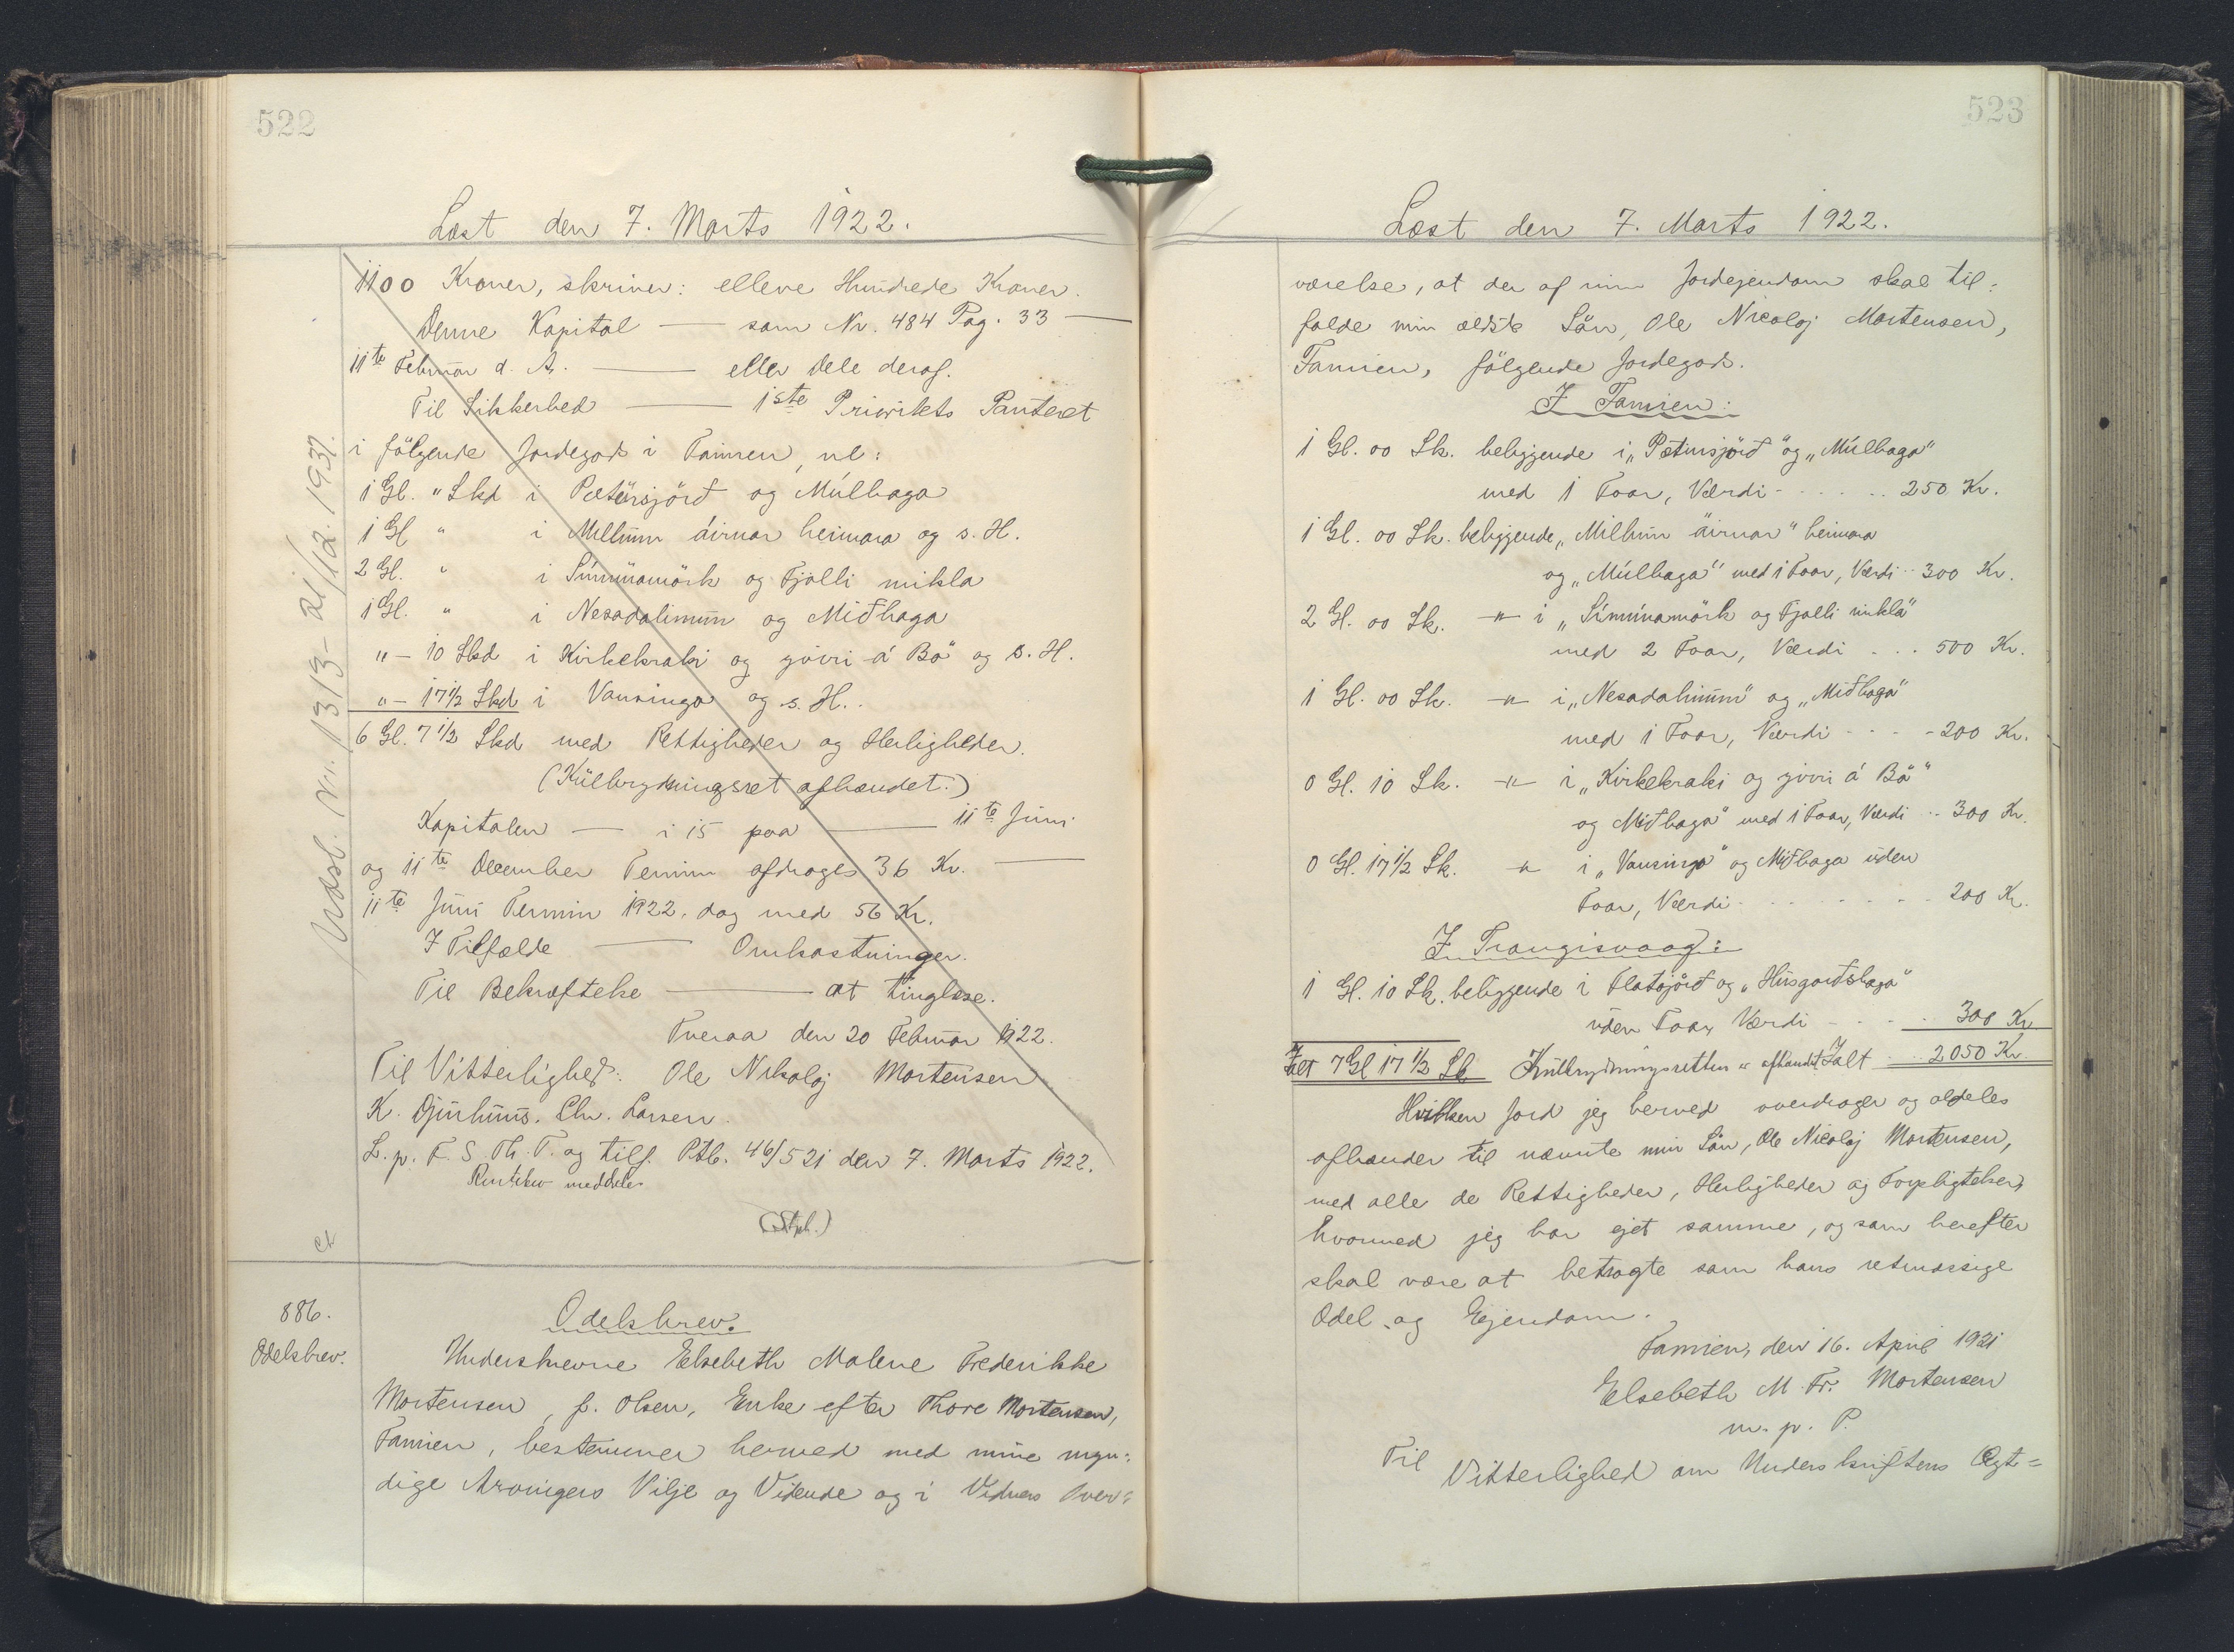 522
Læst den 7. Marts 1922.
1100 Kroner, skriver: elleve Hundrede Kroner.
Denne Kapital — som Nr. 484 Pag. 33 —
11te Februar d. A. — eller Dele deraf.
Til Sikkerhed — 1ste Prioritets Panteret
i følgende Jordegods i Famien, nl:
1 Gl. " Skd i Pætursjørð og Múlhaga
1 Gl " i Millum áirnar heimara og s. H.
2 Gl. " i Símunamörk og Fjalli mikla
1 Gl. " i Nesadalinum og Miðhaga
" — 10 Skd i Kirkekraki og yviri á Bø og s. H.
" — 17 1/2 Skd i Vansinga og s. H.
6 Gl. 7 1/2 Skd med Rettigheder og Herligheder.
(Kulbrydningsret afhændet.)
Kapitalen — i 15 paa — 11te Juni
og 11te December Termin afdrages 36 Kr. —
11te Juni Termin 1922, dog med 56 Kr.
I Tilfælde — Omkostninger.
Til Bekræftelse — at tinglæse.
Tveraa den 20 Februar 1922.
Til Vitterlighed: Ole Nikolaj Mortensen
K. Djurhuus. Chr. Larsen.
L. p. F. S. Th. T. og tilf. Ptb. 46/521 den 7. Marts 1922.
meddeles
Udsl. Nr. 1313 - 21/12. 1937.
886.
Odelsbrev.
Odelsbrev.
Underskrevne Elsebeth Malene Frederikke
Mortensen, f. Olsen, Enke efter Thore Mortensen,
Famien, bestemmer herved med mine myn=
dige Arvingers Vilje og Vidende og i Vidners Over=
523
Læst den 7. Marts 1922.
værelse, at der af min Jordejendom skal til=
falde min ældste Sön, Ole Nicolaj Mortensen,
Famien, fölgende Jordegods.
I Famien:
1 Gl. 00 Sk. beliggende i „Pætursjørð" og „Múlhaga"
med 1 Foar, Værdi - . . . . . 250 Kr.
1 Gl. 00 Sk. beliggende „Millum áirnar" heimara
og „Múlhaga" med 1 Foar, Værdi .. 300 Kr.
2 Gl. 00 Sk. —"— i „Símunamörk og Fjalli mikla"
med 2 Foar, Værdi . . . 500 Kr.
1 Gl. 00 Sk. —"— i „Nesadalinum" og „Miðhaga"
med 1 Foar, Værdi - - - - 200 Kr.
0 Gl. 10 Sk. —"— i „Kirkekraki og yviri á Bø"
og Miðhaga" med 1 Foar, Værdi .. 300 Kr.
0 Gl. 17 1/2 Sk. —"— i „Vansinga" og Miðhaga uden
Foar, Værdi - . . . . . . 200 Kr.
I Trangisvaag:
1 Gl. 10 Sk. beliggende i Flatajørð og „Húsgarðshaga"
uden Foar, Værdi - . . . 300 Kr
Ialt 7 Gl 17 1/2 Sk Kulbrydningsretten er afhændet Ialt .. 2050 Kr
Hvilken Jord jeg herved overdrager og aldeles
afhænder til nævnte min Sön, Ole Nicolaj Mortensen,
med alle de Rettigheder, Herligheder og Forpligtelser,
hvormed jeg har ejet samme, og som herefter
skal være at betragte som hans retmæssige
Odel og Ejendom.
Famien, den 16. April 1921
Elsebeth M. Fr. Mortensen
m. p. P.
Til Vitterlighed om Underskriftens Ægt=